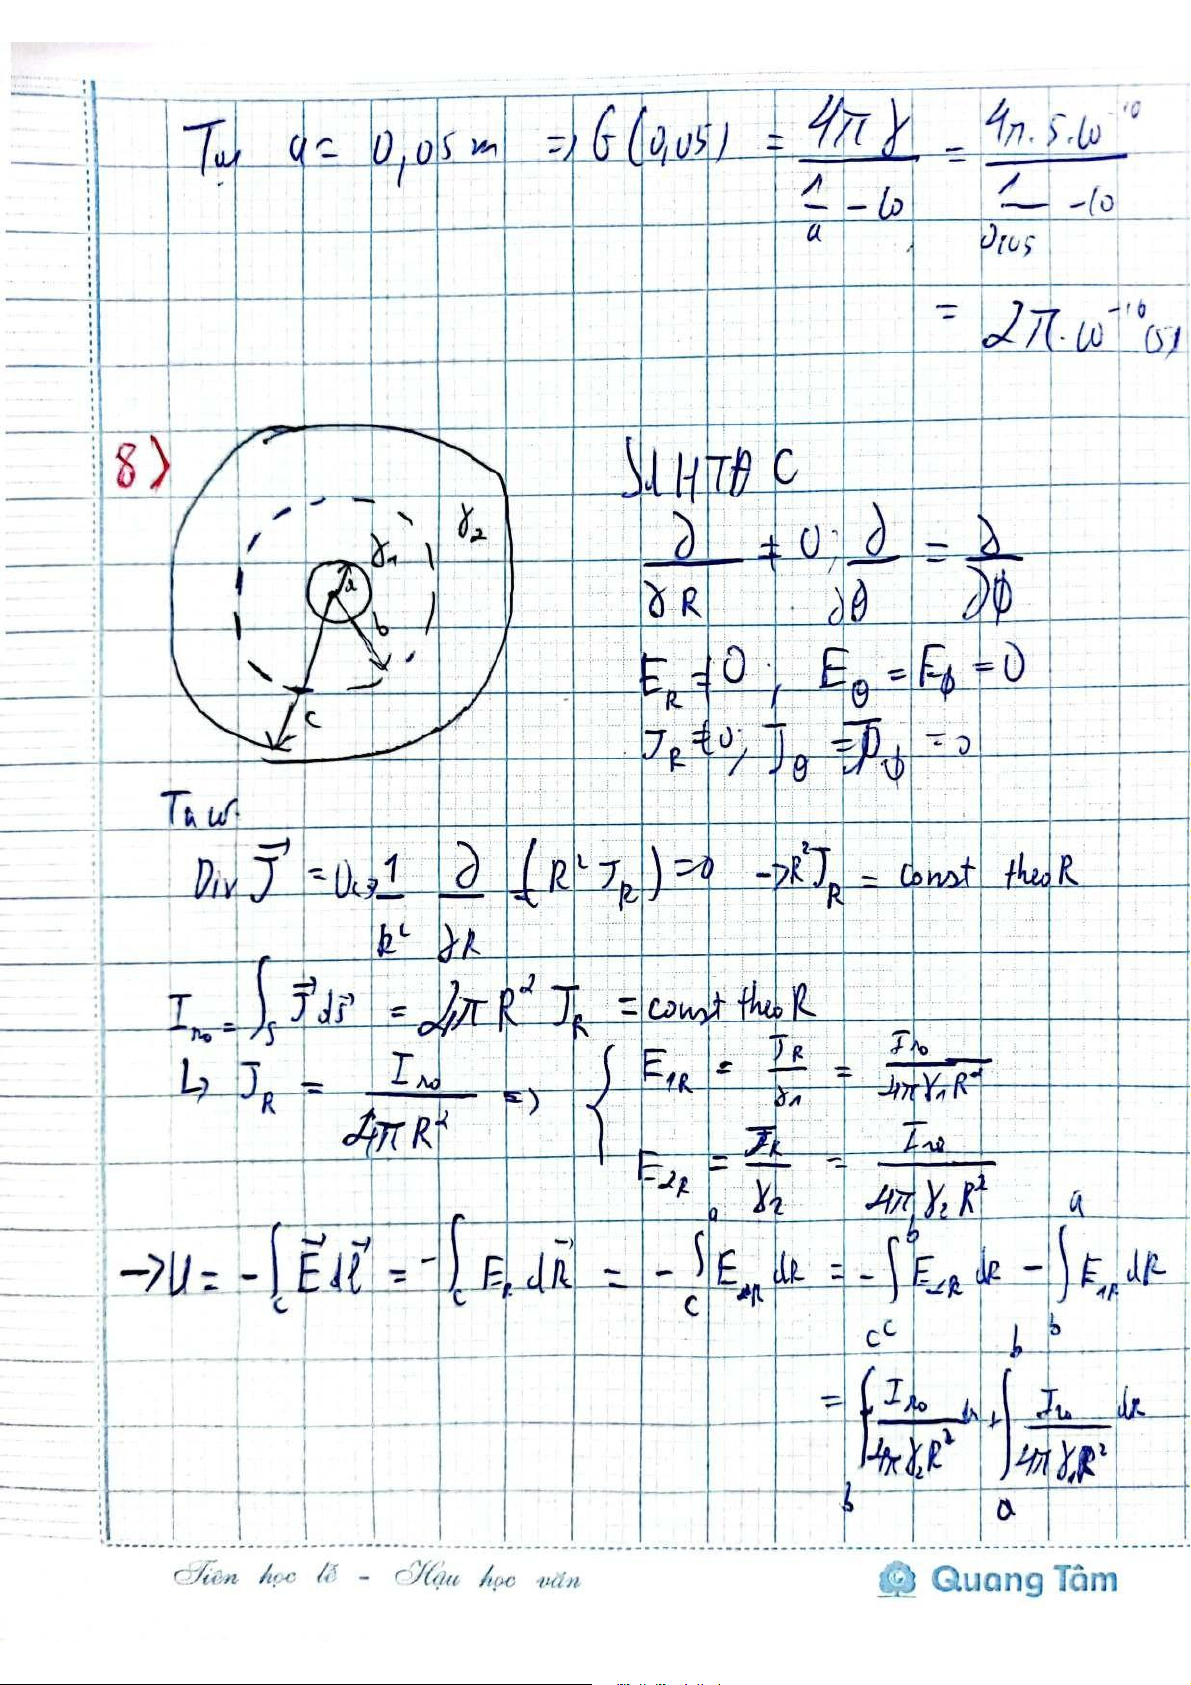 Tại a = 0,05 m => G(0,05) = 4πγ / (1/a − 10) = 4π.5.10^-10 / (1/0,05 − 10)
= 2π.10^-10 (S)
8)
γ1 γ2 a b c
HTĐ C
∂/∂R ≠ 0; ∂/∂θ = ∂/∂ϕ
E_R ≠ 0; E_θ = E_ϕ = 0
J_R ≠ 0; J_θ = J_ϕ = 0
Ta có
Div J⃗ = 0 <=> 1/R² ∂/∂R (R² J_R) = 0 → R² J_R = const theo R
I_ro = ∫_S J⃗ dS⃗ = 4πR² J_R = const theo R
↳ J_R = I_ro / 4πR² => { E_1R = J_R/γ1 = I_ro / 4πγ1R²
E_2R = J_R/γ2 = I_ro / 4πγ2R²
→ U = −∫_C E⃗ dl⃗ = −∫_C E_R dR⃗ = −∫_c^a E_R dR = −∫_c^b E_2R dR − ∫_b^a E_1R dR
= ∫_b^c I_ro / 4πγ2R² dR + ∫_a^b I_ro / 4πγ1R² dR
Tiên học lễ - Hậu học văn
Quang Tâm